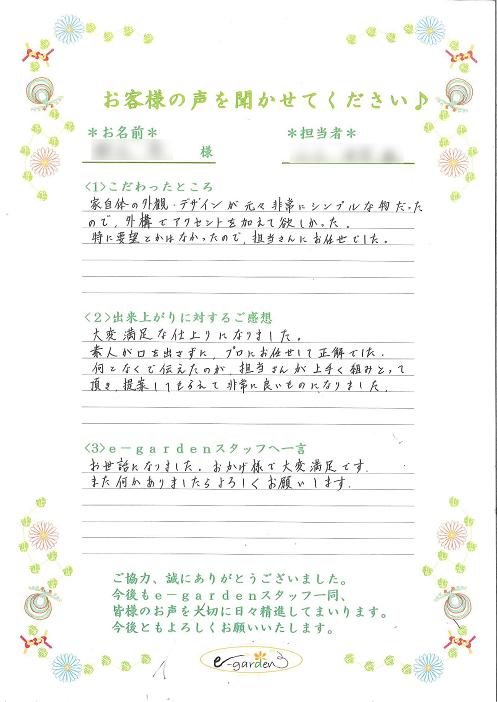 お客様の声を聞かせてください♪
＊お名前＊
＊担当者＊
様
<1>こだわったところ
家自体の外観・デザインが元々非常にシンプルな物だった
ので、外構でアクセントを加えて欲しかった。
特に要望とかはなかったので、担当さんにお任せでした。
<2>出来上がりに対するご感想
大変満足な仕上りになりました。
素人が口を出さずに、プロにお任せして正解でした。
何となくで伝えたのが、担当さんが上手く組みとって
頂き、提案してもらえて非常に良いものになりました。
<3>e－gardenスタッフへ一言
お世話になりました。おかげ様で大変満足です。
また何かありましたらよろしくお願いします。
ご協力、誠にありがとうございました。
今後もe－gardenスタッフ一同、
皆様のお声を大切に日々精進してまいります。
今後ともよろしくお願いいたします。
e-garden